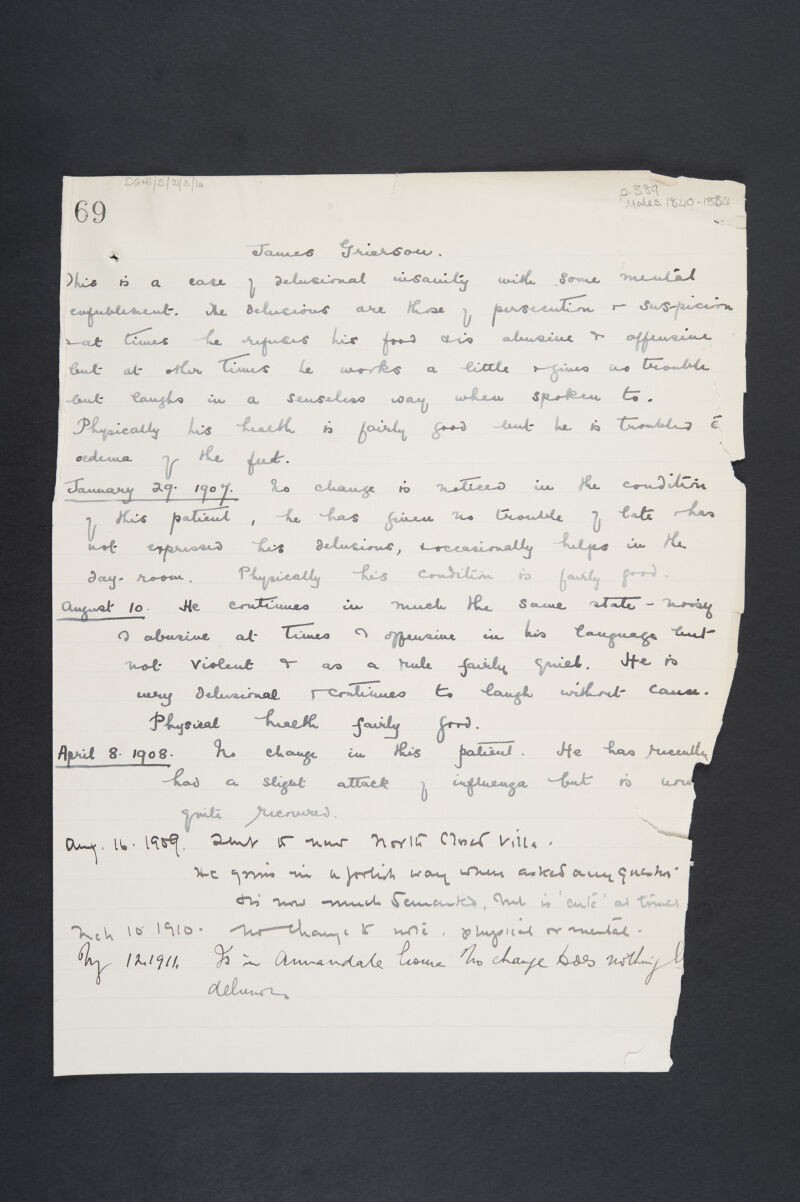 DGH1/8/21/3/1a
p.339
Males 1840-1884
69
James Grierson.
This is a case of delusional insanity with some mental
enfeeblement. The delusions are those of persecution & suspicion
& at times he refuses his food & is abusive & offensive
but at other times he works a little & gives no trouble
but laughs in a senseless way when spoken to.
Physically his health is fairly good but he is troubled c̄
oedema of the feet.
January 29. 1907. No change is noticed in the condition
of this patient, he has given no trouble of late & has
not expressed his delusions, & occasionally helps in the
day-room. Physically his condition is fairly good.
August 10. He continues in much the same state - noisy
& abusive at times & offensive in his language but
not violent & as a rule fairly quiet. He is
very delusional & continues to laugh without cause.
Physical health fairly good.
April 8. 1908. No change in this patient. He has recently
had a slight attack of influenza but is now
quite recovered.
Aug. 16. 1909. Sent to new North Closed Villa.
He grins in a foolish way when asked any questi
& is now much demented, but is 'cute' at times
Mch 10 1910. No change to note. physical or mental.
12.1911. Is in Annandale home No change does nothing
delusions